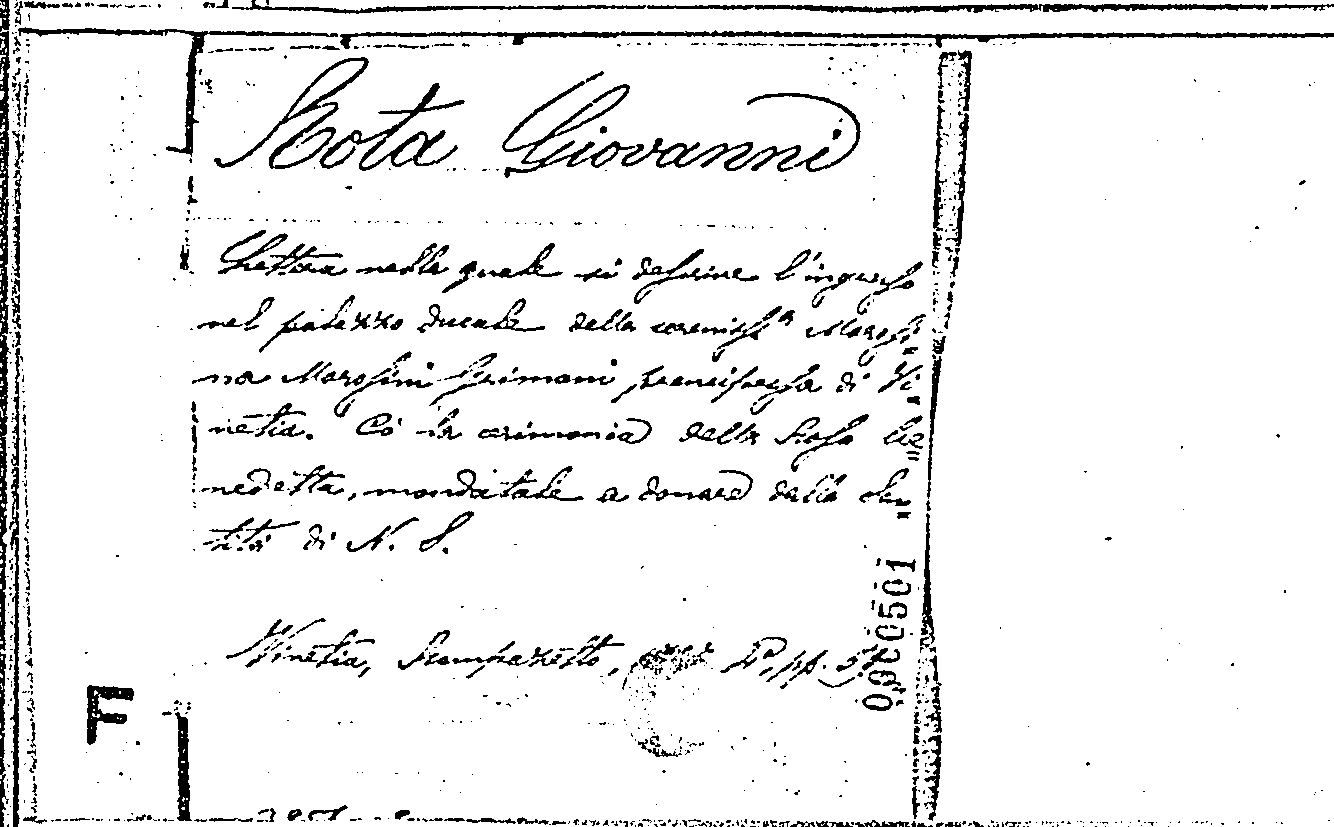 Rota Giovanni
Lettera nella quale si descrive l'ingresso
nel palazzo ducale della sereniss.ª Morosi
na Morosini Grimani, prencipessa di Vi
netia. Cō la cerimonia della Rosa be
nedetta, mandatale a donare dalla San
tità di N. S.
Vinetia, Rampazetto, 4º, pp.
0000501
F